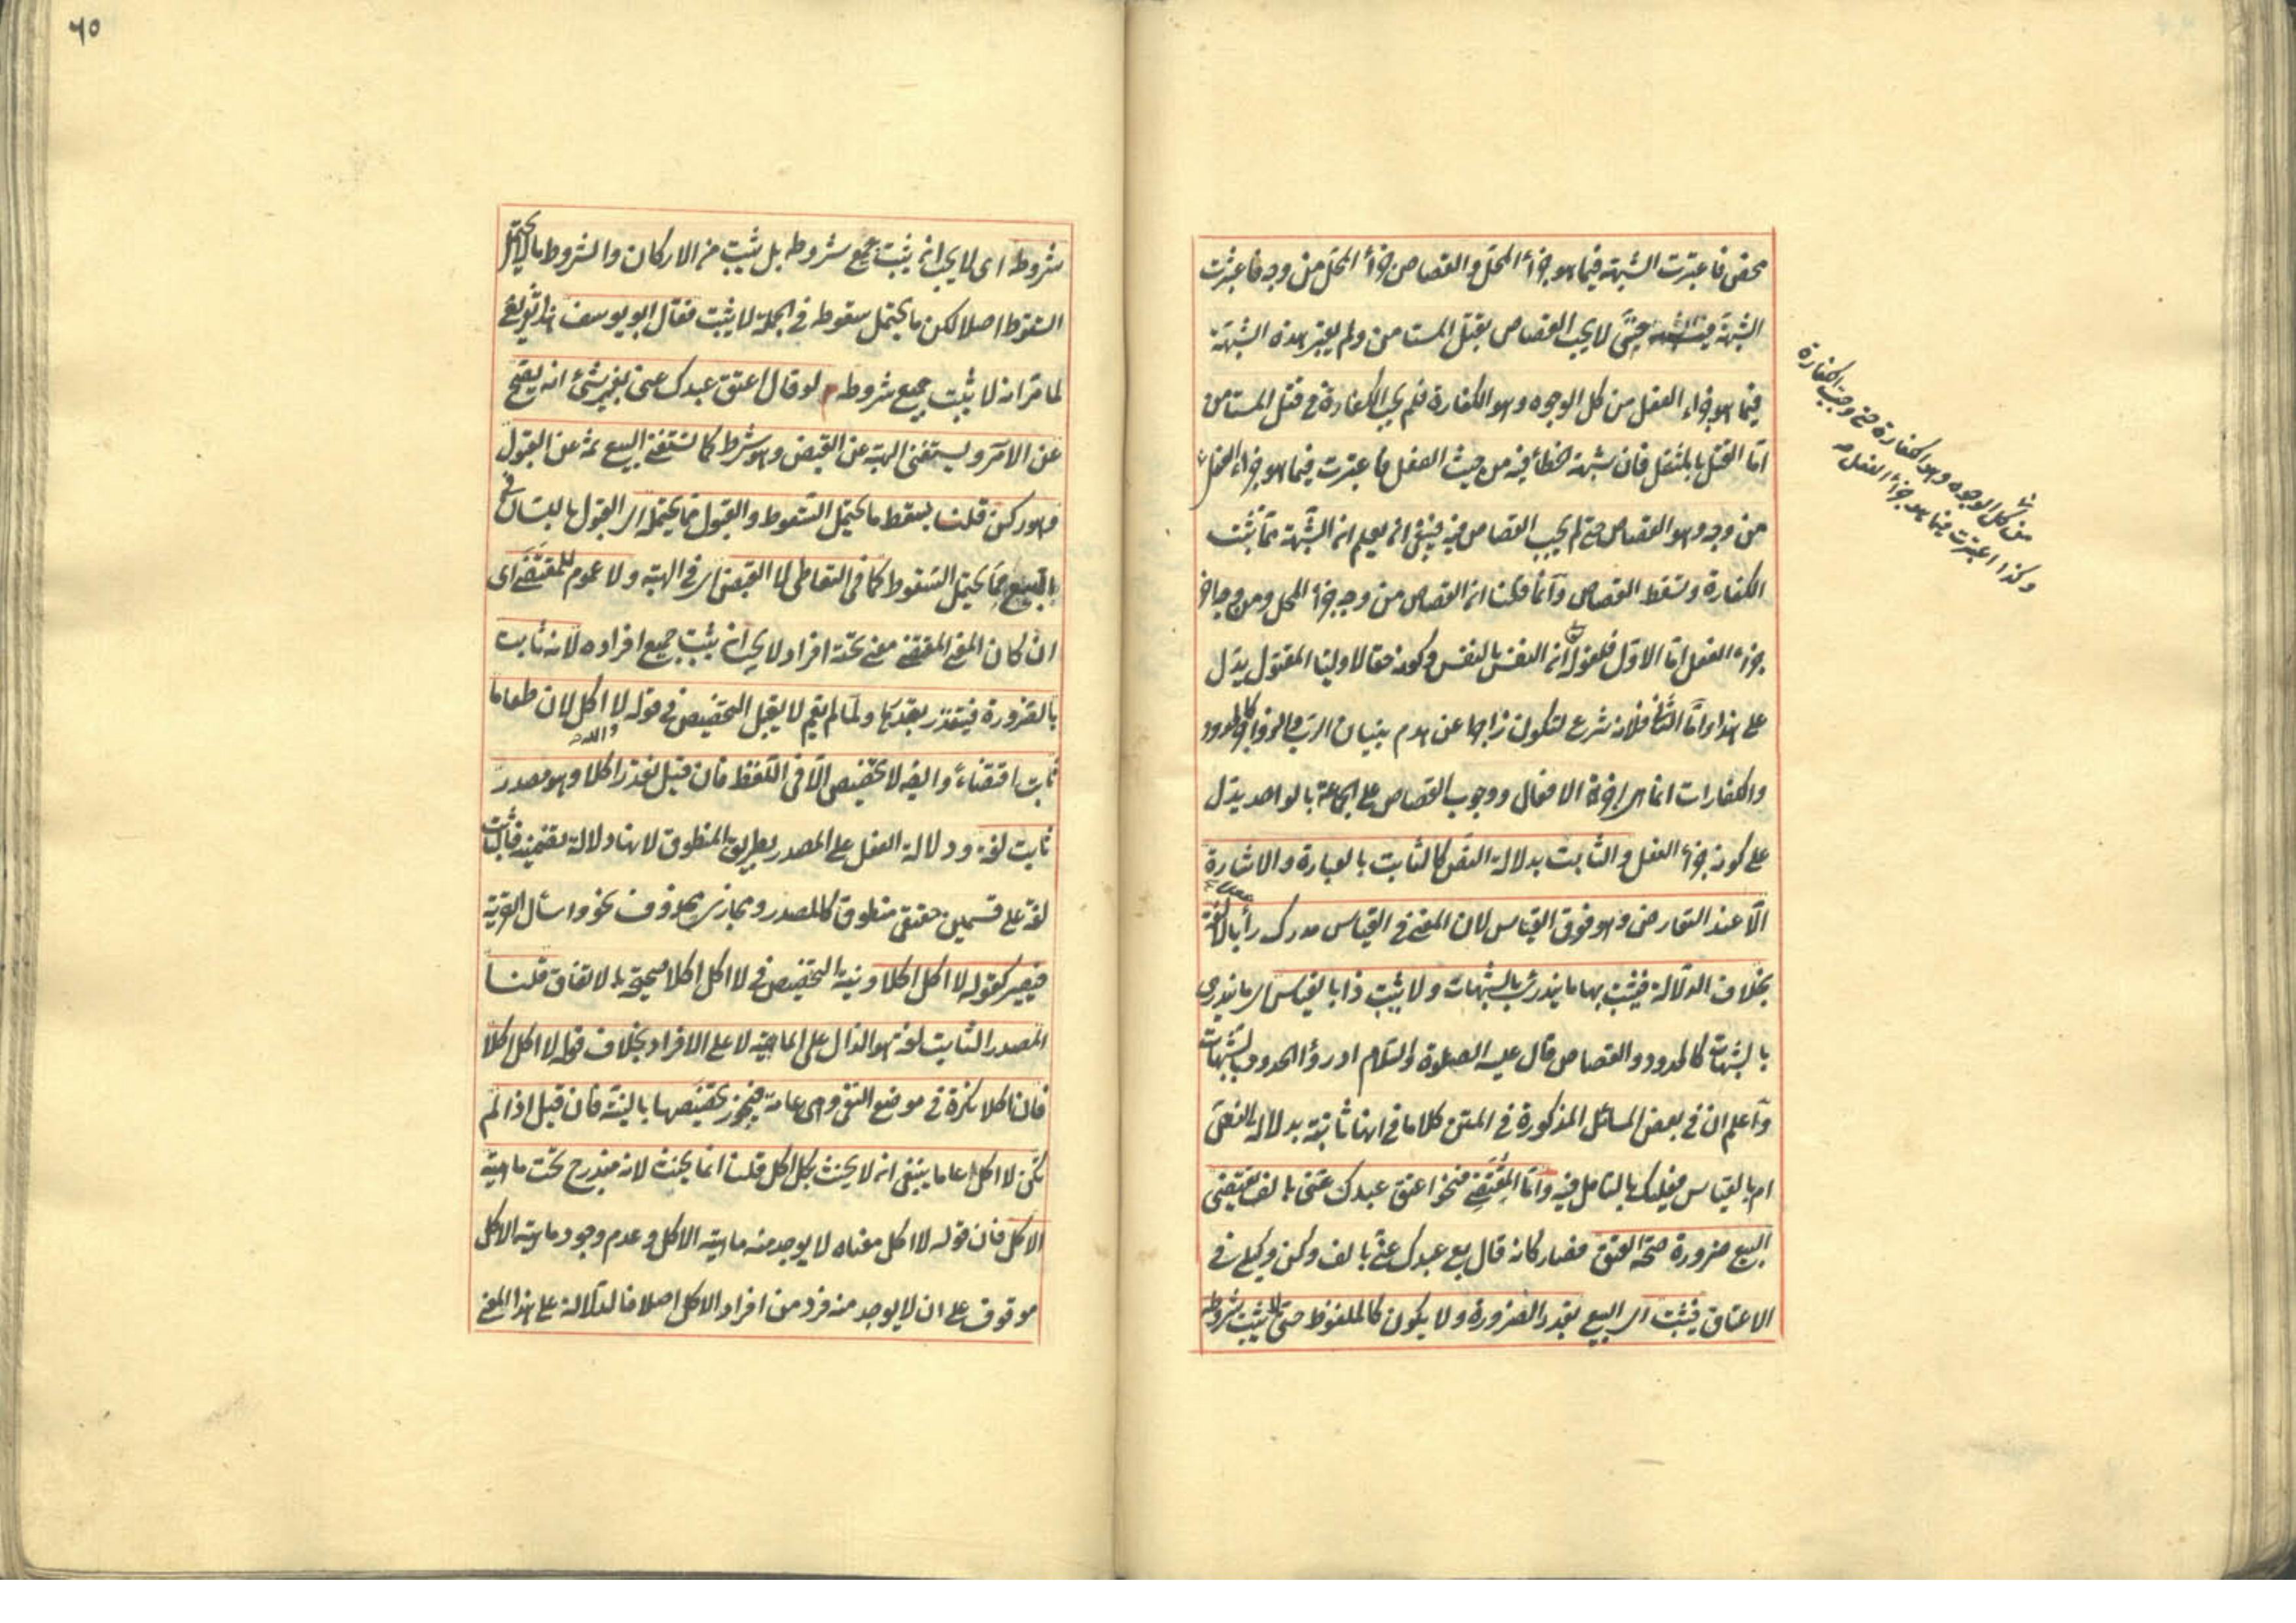 محض فاعتبرت الشبهة فيما هو جزاء المحل والقصاص جزاء المحل من وجه فاعتبرت
الشبهة فيه حتى لا يجب القصاص بقتل المستامن ولم يعتبر هذه الشبهة
فيما هو جزاء الفعل من كل الوجوه وهو الكفارة فلم يجب الكفارة في قتل المستامن
اما القتل بالمثقل فان شبهة الخطأ فيه من حيث الفعل فاعتبرت فيما هو جزاء الفعل
من كل الوجوه وهو الكفارة حتى وجبت الكفارة
وكذا اعتبرت فيما هو جزاء الفعل
من وجه وهو القصاص حتى لم يجب القصاص فيه فينبغي ان يعلم ان الشبهة مما تثبت
الكفارة وتسقط القصاص وانما قلنا ان القصاص من وجه جزاء المحل ومن وجه اخر
جزاء الفعل اما الاول فلقوله تع ان النفس بالنفس وكونه حقا لاولياء المقتول يدل
على هذا واما الثاني فلانه شرع لتكون زاجرا عن هدم بنيان الرب والزواجر كالحدود
والكفارات انما هى اجزية الافعال ووجوب القصاص على الجماعة بالواحد يدل
على كونه جزاء الفعل والثابت بدلالة النص كالثابت بالعبارة والاشارة
الا عند التعارض وهو فوق القياس لان المعنى في القياس مدرك رأيا لا لغة
بخلاف الدلالة فيثبت بها ما يندرئ بالشبهات ولا يثبت ذا بالقياس اى ما يندرئ
بالشبهات كالحدود والقصاص قال عليه الصلوة والسلام ادرؤا الحدود بالشبهات
واعلم ان في بعض المسائل المذكورة في المتن كلاما في انها ثابتة بدلالة النص
ام بالقياس فعليك بالتامل فيه واما المقتضى فنحو اعتق عبدك عنى بالف يقتضى
البيع ضرورة صحة العتق فصار كانه قال بع عبدك عنى بالف وكن وكيلى في
الاعتاق فيثبت اى البيع بقدر الضرورة ولا يكون كالملفوظ حتى لا يثبت شروطه
٦٥
شروط اى لا يجب ان يثبت جميع شروطه بل يثبت من الاركان والشروط ما لا يحتمل
السقوط اصلا لكن ما يحتمل سقوطه في الجملة لا يثبت فقال ابو يوسف هذا تفريع
لما مر انه لا يثبت جميع شروطه لو قال اعتق عبدك عنى بغير شئ انه يصح
عن الامر ويستغنى الهبة عن القبض وهو شرط كما تستغنى البيع ثمه عن القبول
وهو ركن قلنا يسقط ما يحتمل السقوط والقبول مما يحتمله اى القبول باللسان في
البيع مما يحتمل السقوط كما في التعاطى لا القبض اى في الهبة ولا عموم للمقتضى اى
ان كان المعنى المقتضى معنى تحته افراد لا يجب ان يثبت جميع افراده لانه ثابت
بالضرورة فيتقدر بقدرها ولما لم يعم لا يقبل التخصيص في قوله والله لا اكل لان طعاما
ثابت اقتضاء وايضا لا تخصيص الا في اللفظ فان قيل يقدر اكلا وهو مصدر
ثابت لغة ودلالة الفعل على المصدر بطريق المنطوق لانها دلالة تضمنية فالثابت
لغة على قسمين حقيقى منطوق كالمصدر ومجازى محذوف نحو واسأل القرية
فيصير كقوله لا اكل اكلا ونية التخصيص في لا اكل اكلا صحيحة بالاتفاق قلنا
المصدر الثابت لغة هو الدال على الماهية لا على الافراد بخلاف قوله لا اكل اكلا
فان اكلا نكرة في موضع النفى وهى عامة فيجوز تخصيصها بالنية فان قيل اذا لم
يكن لا اكل عاما ينبغى ان لا يحنث بكل اكل قلنا انما يحنث لانه مندرج تحت ماهية
الاكل فان قوله لا اكل معناه لا يوجد منه ماهية الاكل وعدم وجود ماهية الاكل
موقوف على ان لا يوجد منه فرد من افراد الاكل اصلا فالدلالة على هذا المعنى